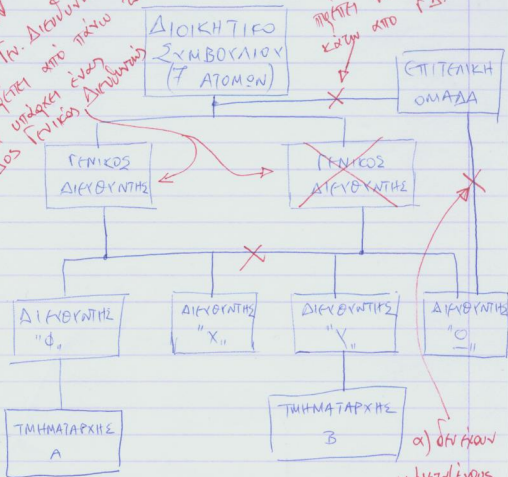 Γεν. Διευθυν
από πάνω
υπάρχει ένας
Γενικός Διευθυντής
πρέπει
κάτω από
ΔΙΟΙΚΗΤΙΚΟ
ΣΥΜΒΟΥΛΙΟΥ
(7 ΑΤΟΜΩΝ)
ΕΠΙΤΕΛΙΚΗ
ΟΜΑΔΑ
ΓΕΝΙΚΟΣ
ΔΙΕΥΘΥΝΤΗΣ
ΓΕΝΙΚΟΣ
ΔΙΕΥΘΥΝΤΗΣ
ΔΙΕΥΘΥΝΤΗΣ
"Φ"
ΔΙΕΥΘΥΝΤΗΣ
"Χ"
ΔΙΕΥΘΥΝΤΗΣ
"Υ"
ΔΙΕΥΘΥΝΤΗΣ
"Ω"
ΤΜΗΜΑΤΑΡΧΗΣ
Α
ΤΜΗΜΑΤΑΡΧΗΣ
Β
α) δεν έχουν